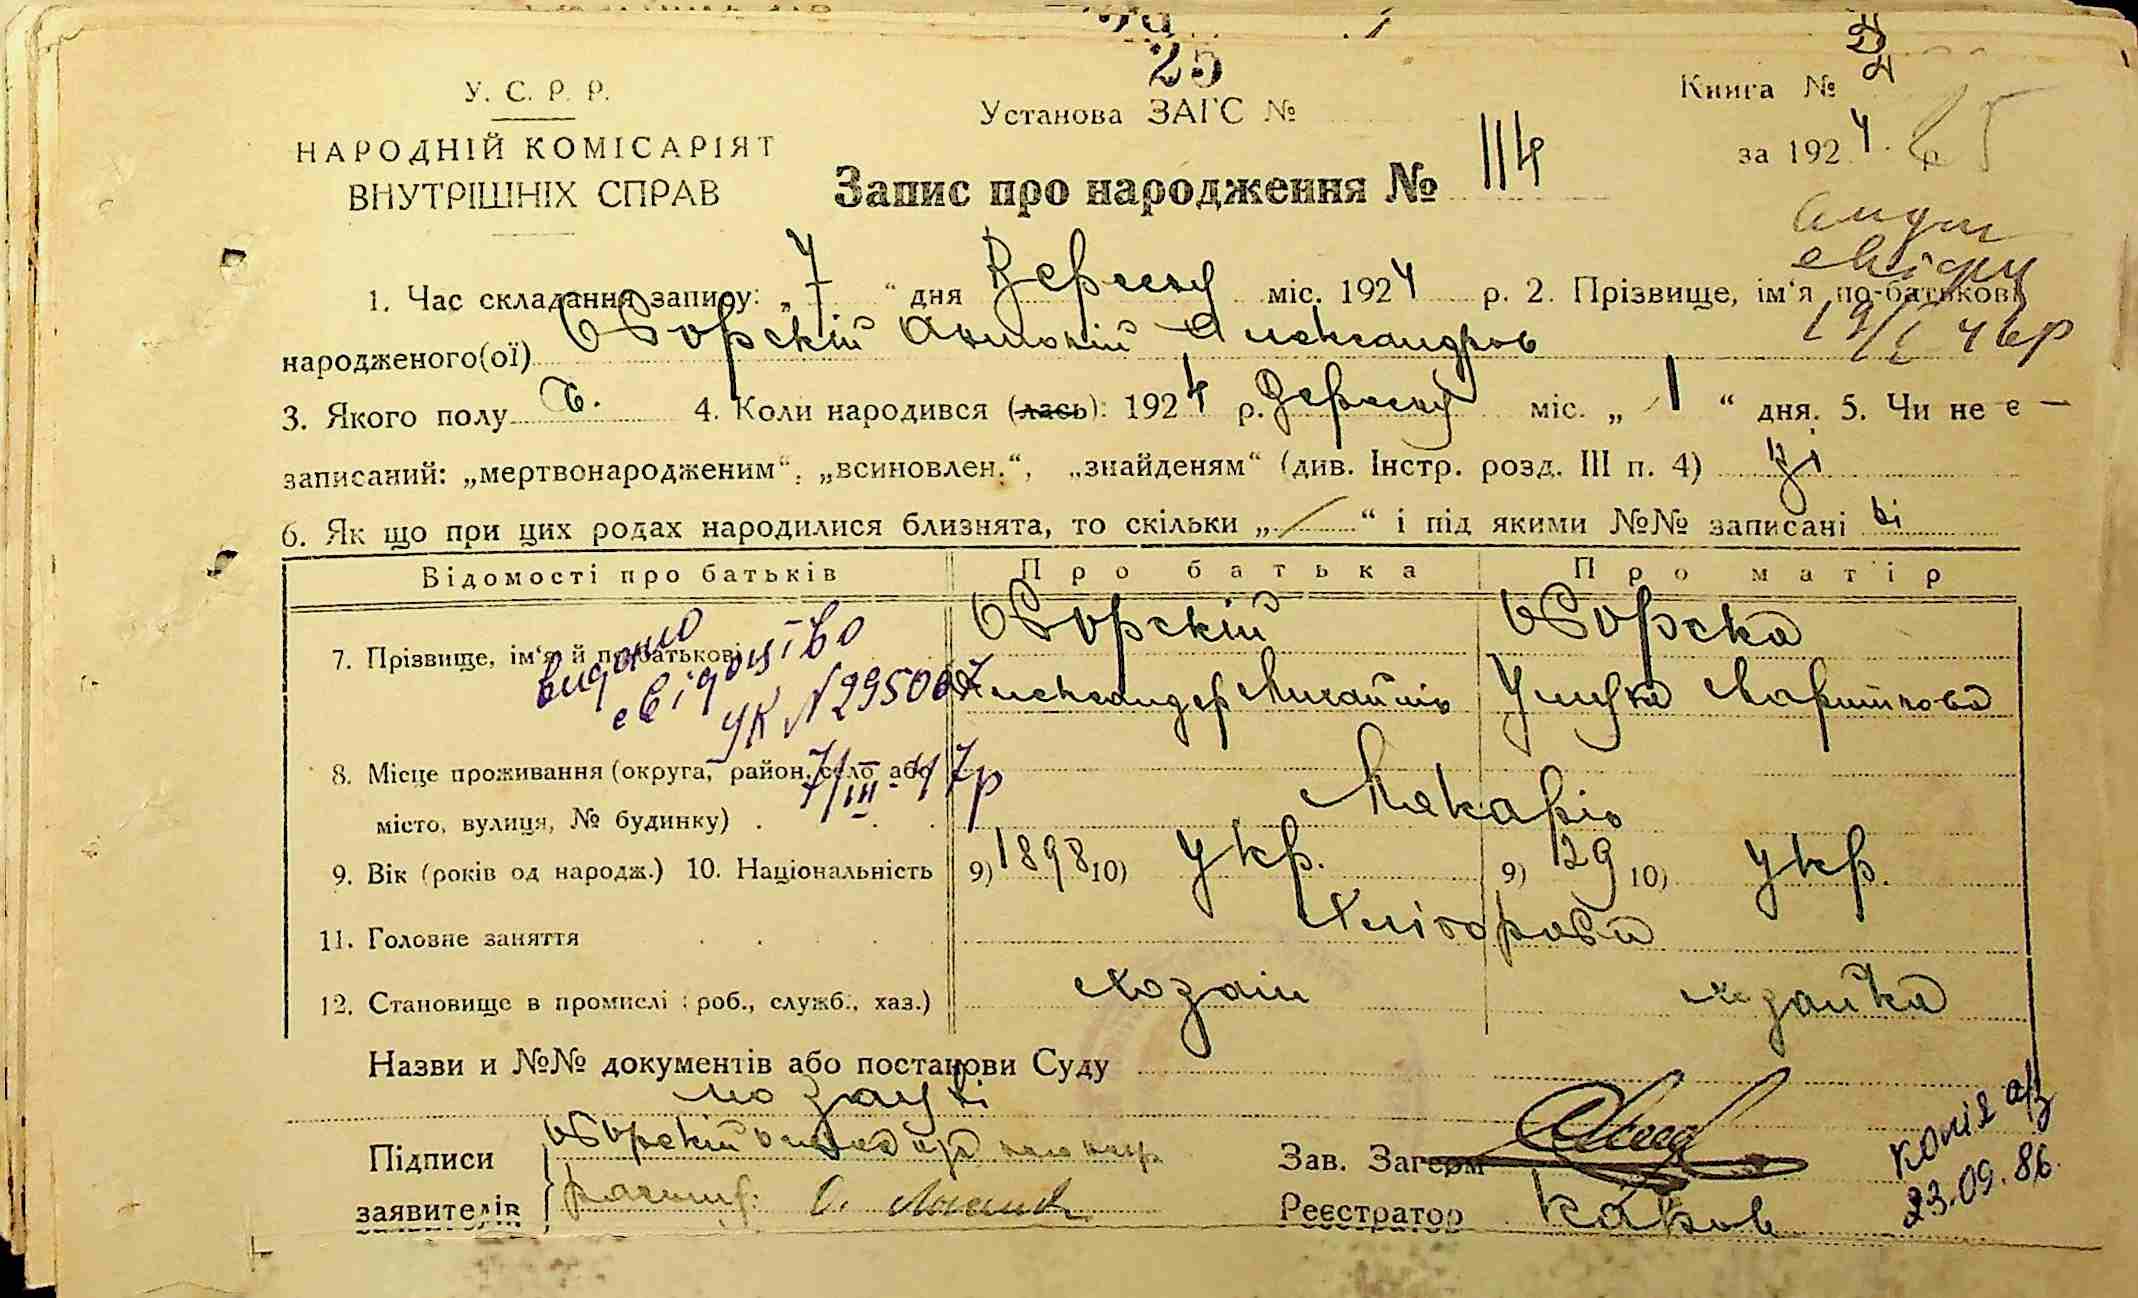 25
У. С. Р. Р.
НАРОДНІЙ КОМІСАРІЯТ
ВНУТРІШНІХ СПРАВ
Установа ЗАГС №
Книга №
за 1924 р
Запис про народження № 114
1. Час складання запису: „ 7 “ дня Вересня міс. 1924 р. 2. Прізвище, ім‘я по-батькові
народженого(ої) Антоній Александров
3. Якого полу ч. 4. Коли народився (лась): 1924 р. Вересня міс. „ 1 “ дня. 5. Чи не є —
записаний: „мертвонародженим“, „всиновлен.“, „знайденям“ (див. Інстр. розд. III п. 4) ні
6. Як що при цих родах народилися близнята, то скільки „ / “ і під якими №№ записані ні
Відомості про батьків Про батька Про матір
7. Прізвище, ім‘я й по-батькові
Александер Михайлів
видано
свідоцтво
УК N 295067
7/III-47р
8. Місце проживання (округа, район, село або
місто, вулиця, № будинку) Макарів
9. Вік (років од народж.) 10. Національність 9) 1898 10) укр. 9) 29 10) укр.
11. Головне заняття Хліборобст
12. Становище в промислі (роб., служб., хаз.) хозяін хозяйка
Назви и №№ документів або постанови Суду
по заяві
Підписи
заявителів
Зав. Загсом
Реєстратор
копія а/з
23.09.86.